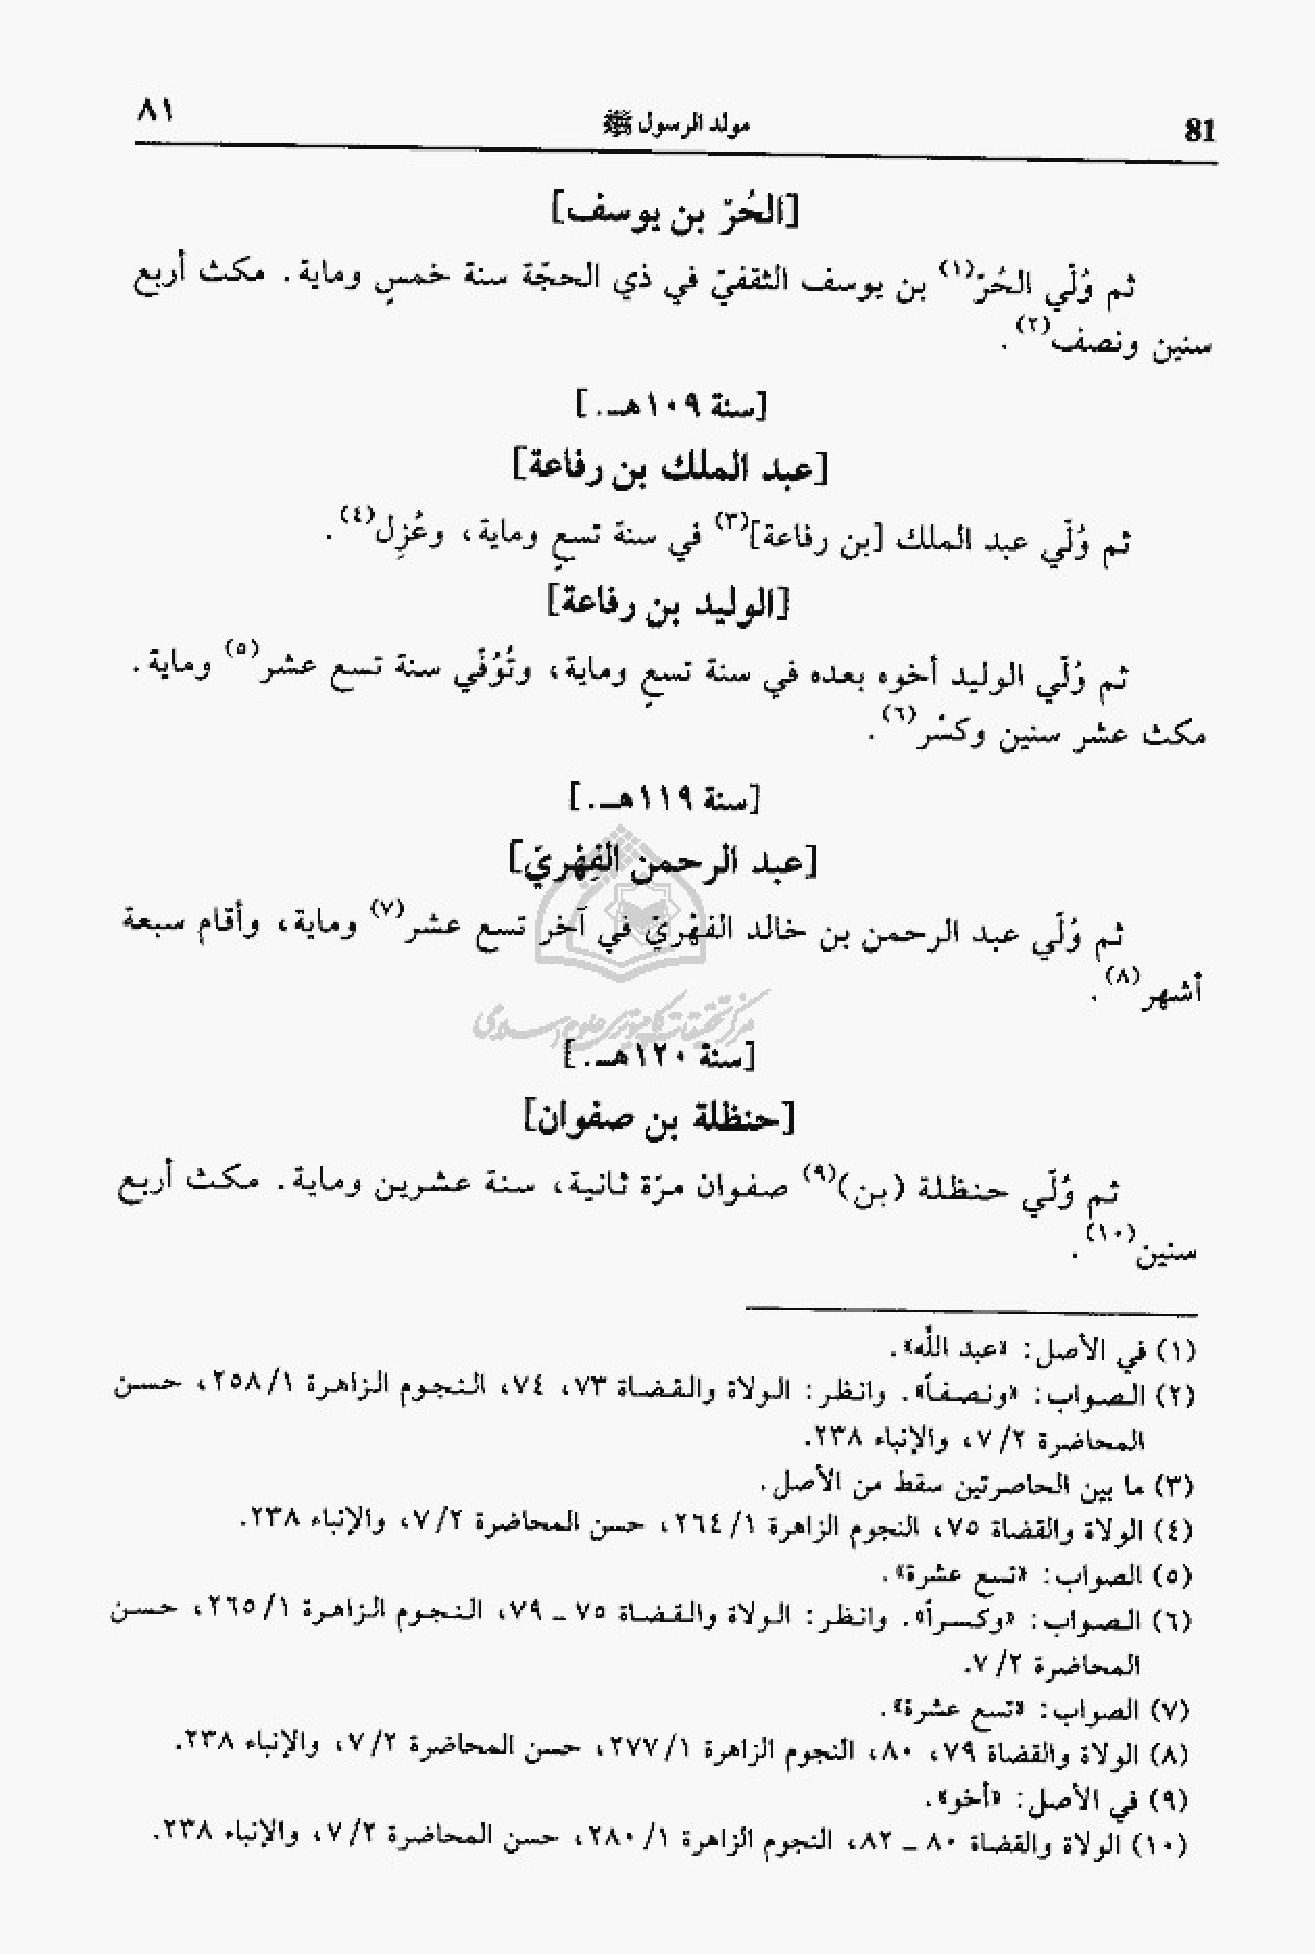 ٨١
مولد الرسول ﷺ
81
[الحُرّ بن يوسف]
ثم وُلّي الحُرّ(١) بن يوسف الثقفيّ في ذي الحجّة سنة خمسٍ وماية. مكث أربع
سنين ونصف(٢).
[سنة ١٠٩هـ.]
[عبد الملك بن رفاعة]
ثم وُلّي عبد الملك [بن رفاعة](٣) في سنة تسعٍ وماية، وعُزِل(٤).
[الوليد بن رفاعة]
ثم وُلّي الوليد أخوه بعده في سنة تسعٍ وماية، وتُوُفّي سنة تسع عشر(٥) وماية.
مكث عشر سنين وكسْر(٦).
[سنة ١١٩هـ.]
[عبد الرحمن الفِهْريّ]
ثم وُلّي عبد الرحمن بن خالد الفهْريّ في آخر تسع عشر(٧) وماية، وأقام سبعة
أشهر(٨).
مركز تحقيقات كامپيوترى علوم اسلامى
[سنة ١٢٠هـ.]
[حنظلة بن صفوان]
ثم وُلّي حنظلة (بن)(٩) صفوان مرّة ثانية، سنة عشرين وماية. مكث أربع
سنين(١٠).
(١) في الأصل: «عبد اللّه».
(٢) الصواب: «ونصفاً». وانظر: الولاة والقضاة ٧٣، ٧٤، النجوم الزاهرة ٢٥٨/١، حسن
المحاضرة ٧/٢، والإنباء ٢٣٨.
(٣) ما بين الحاصرتين سقط من الأصل.
(٤) الولاة والقضاة ٧٥، النجوم الزاهرة ٢٦٤/١، حسن المحاضرة ٧/٢، والإنباء ٢٣٨.
(٥) الصواب: «تسع عشرة».
(٦) الصواب: «وكسراً». وانظر: الولاة والقضاة ٧٥ ـ ٧٩، النجوم الزاهرة ٢٦٥/١، حسن
المحاضرة ٧/٢.
(٧) الصواب: «تسع عشرة».
(٨) الولاة والقضاة ٧٩، ٨٠، النجوم الزاهرة ٢٧٧/١، حسن المحاضرة ٧/٢، والإنباء ٢٣٨.
(٩) في الأصل: «أخو».
(١٠) الولاة والقضاة ٨٠ ـ ٨٢، النجوم الزاهرة ٢٨٠/١، حسن المحاضرة ٧/٢، والإنباء ٢٣٨.